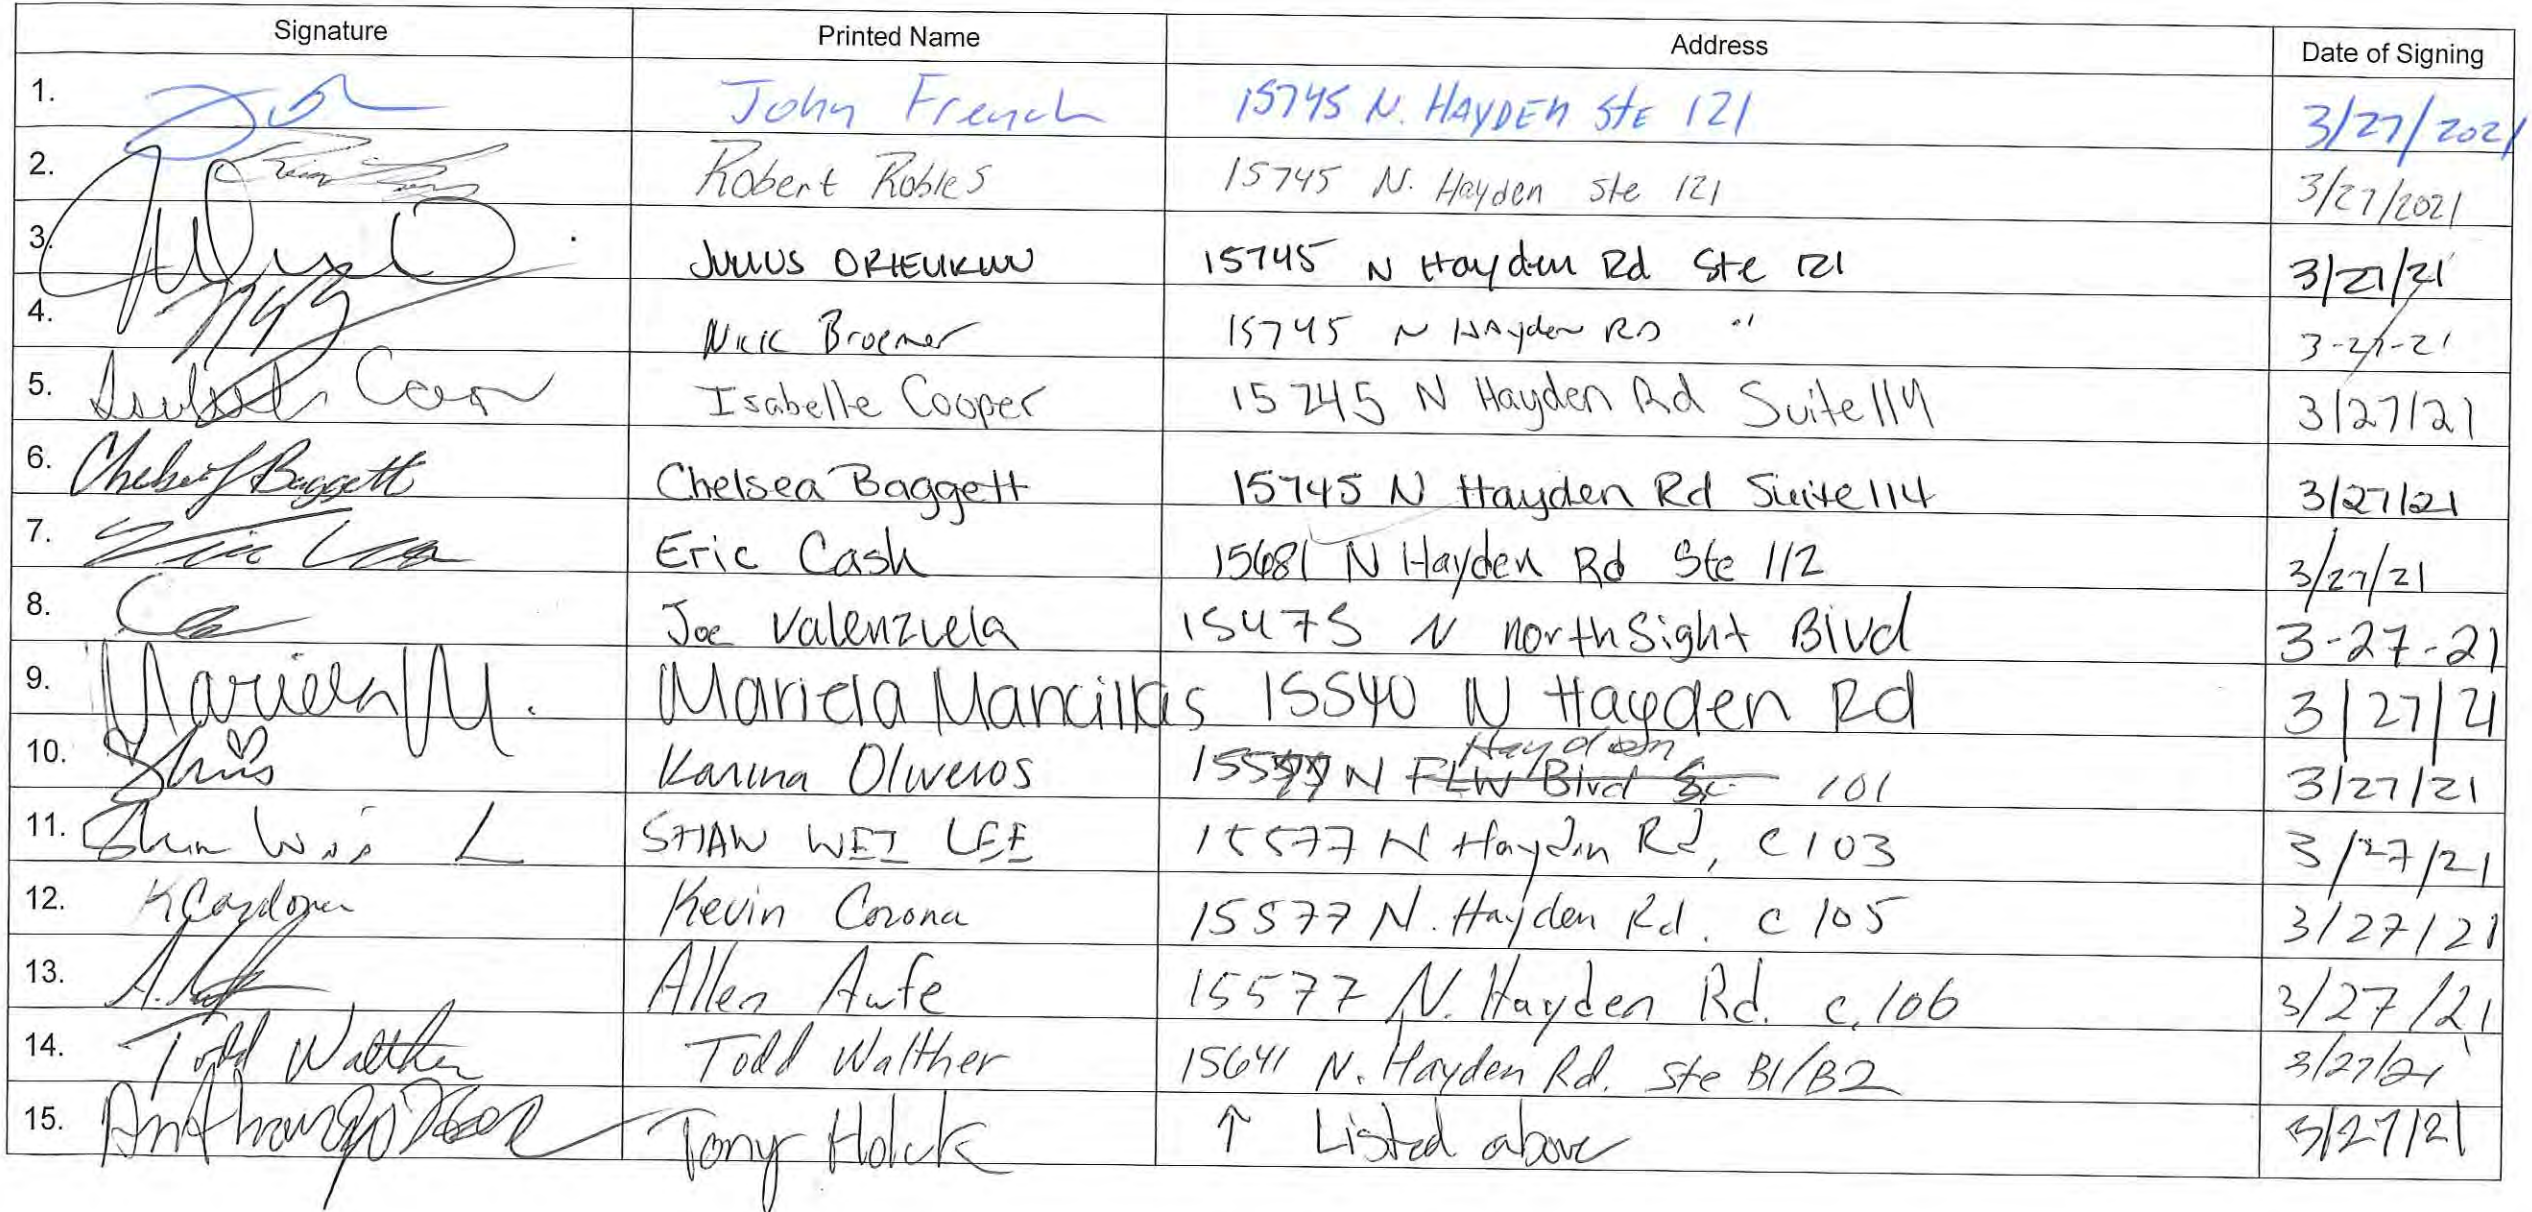 Signature Printed Name Address Date of Signing
1. John French 15745 N. HAYDEN StE 121 3/27/2021
2. Robert Robles 15745 N. Hayden Ste 121 3/27/2021
3. JULIUS 15745 N Hayden Rd Ste 121 3/27/21
4. Nick Broemer 15745 N HAyden RD " 3-27-21
5. Isabelle Cooper 15745 N Hayden Rd Suite 114 3/27/21
6. Chelsea Baggett Chelsea Baggett 15745 N Hayden Rd Suite 114 3/27/21
7. Eric Cash 15681 N Hayden Rd Ste 112 3/27/21
8. Joe Valenzuela 15475 N northSight Blvd 3-27-21
9. Mariela M. Mariela Mancillas 15540 N Hayden Rd 3/27/21
Hayden
10. Karina Oliveros N FLW Blvd 101 3/27/21
11. Shaw Wei L SHAW WEI LEE 15577 N Hayden Rd, C103 3/27/21
12. Kevin Corona 15577 N. Hayden Rd. C105 3/27/21
13. A. Allen Aufe 15577 N. Hayden Rd. C.106 3/27/21
14. Todd Walther Todd Walther 15641 N. Hayden Rd. Ste B1/B2 3/27/21
15. Anthony Tony Holck ↑ Listed above 3/27/21